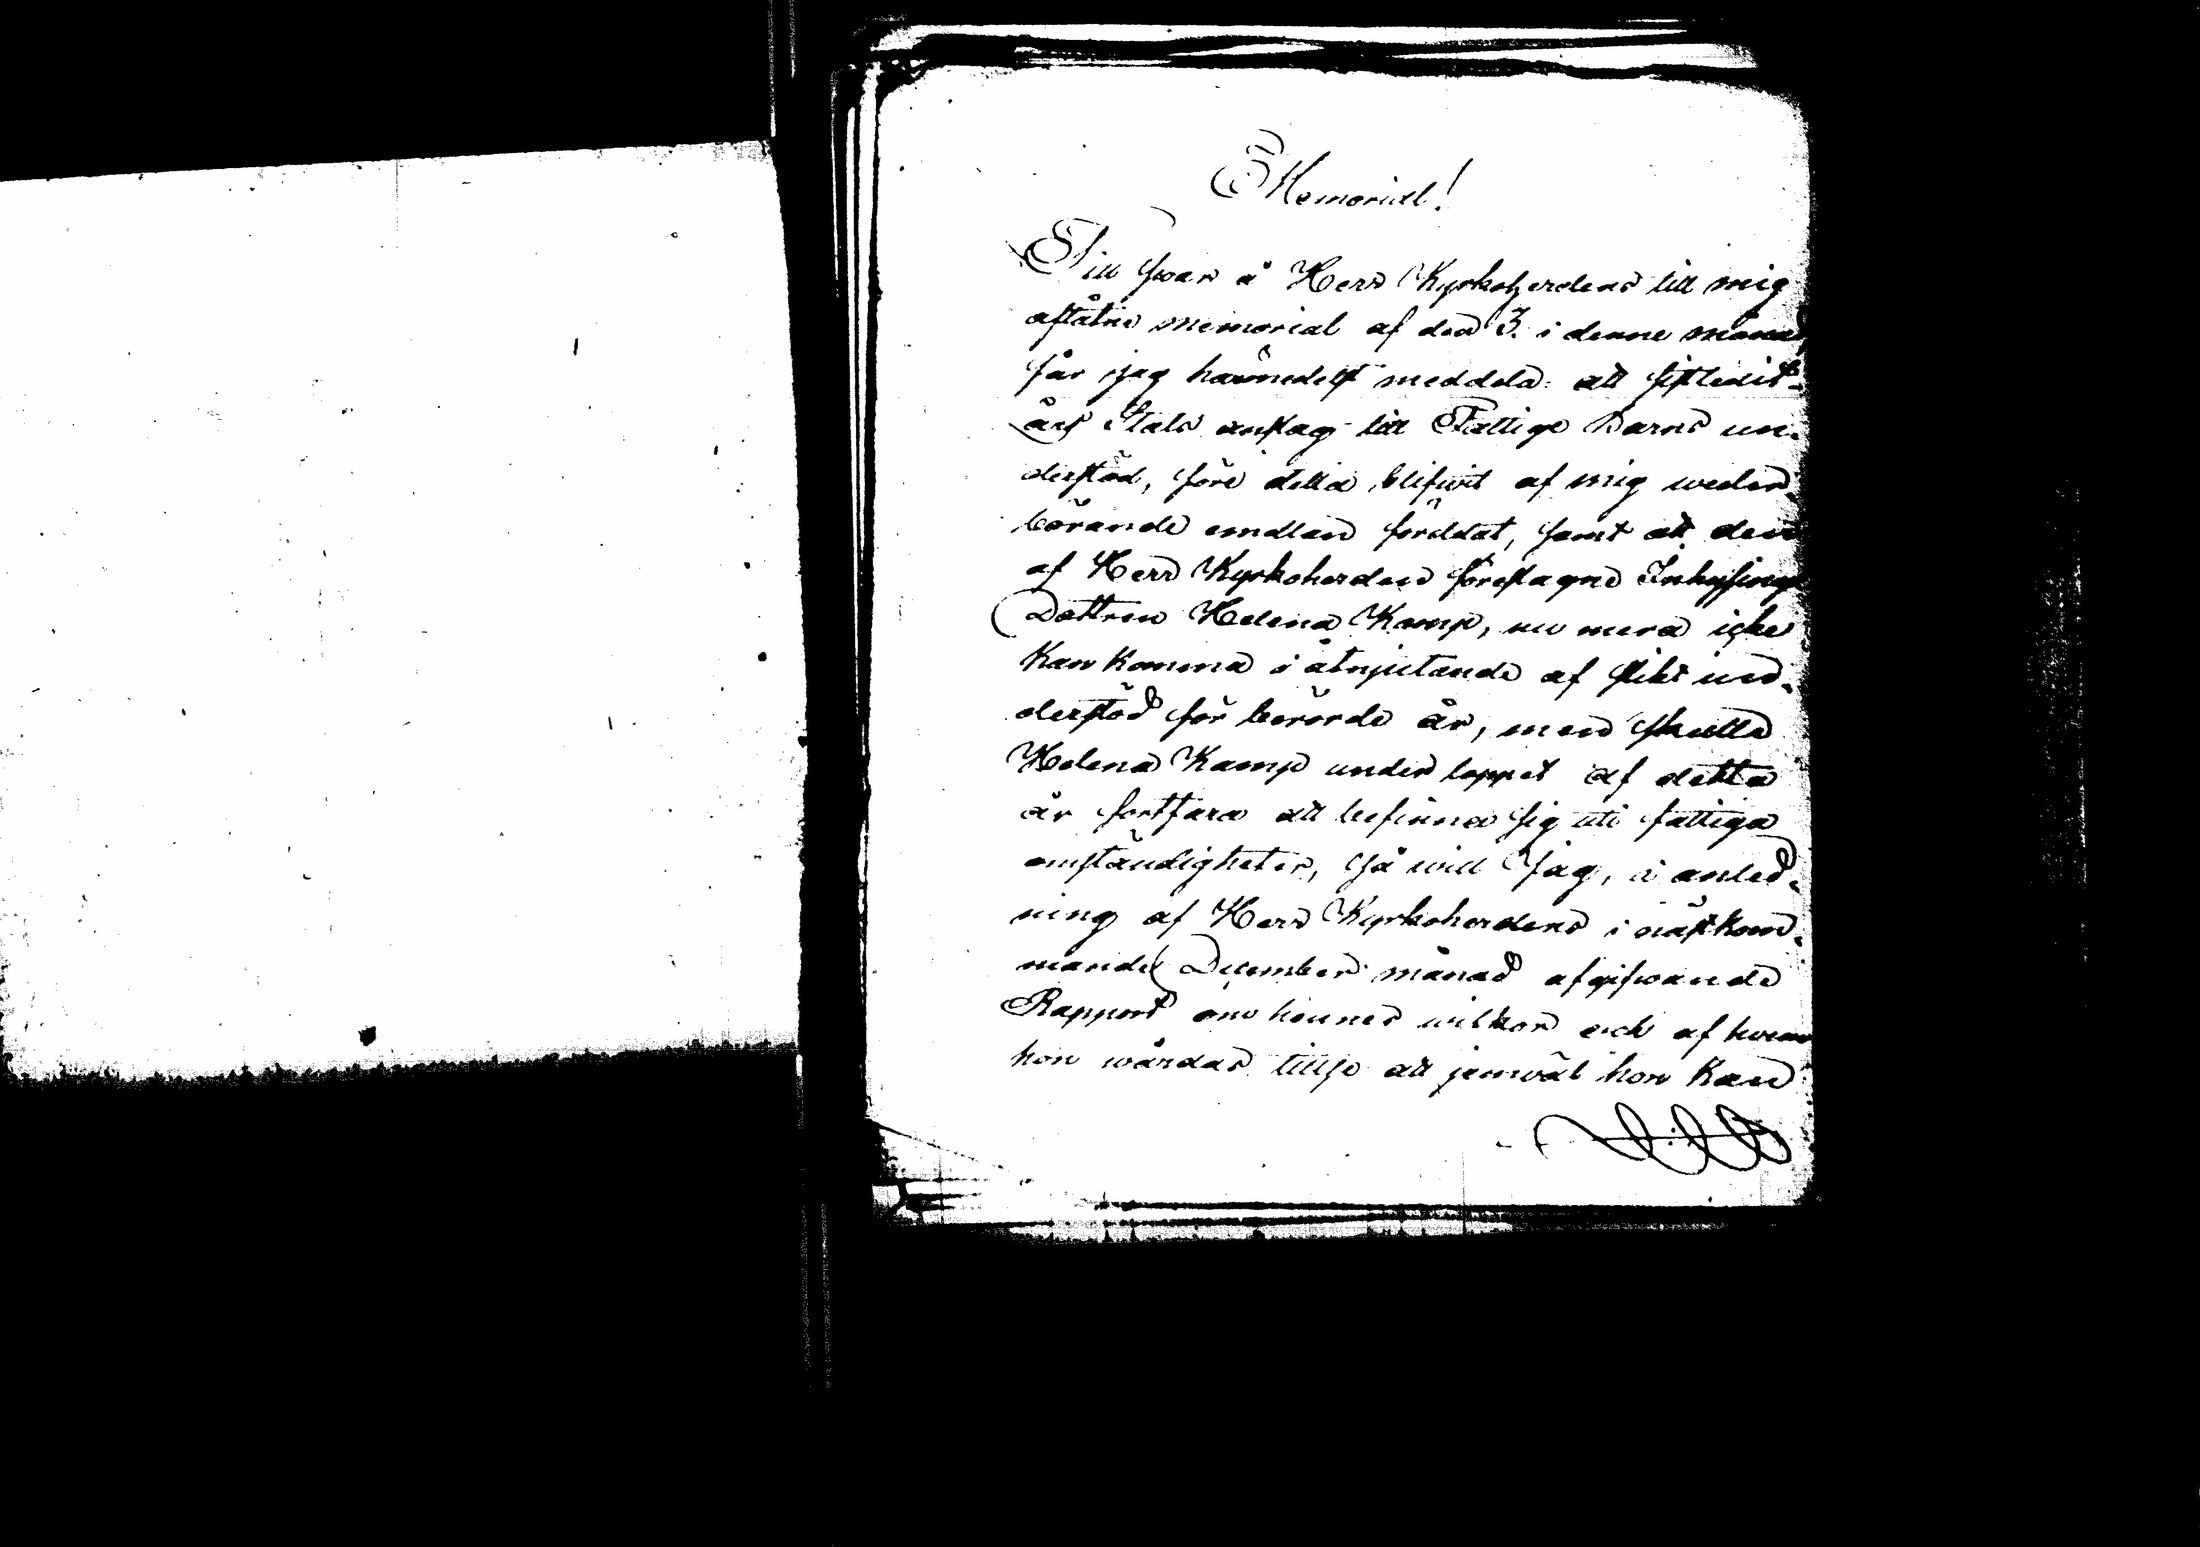 Memorial!
Till swar å Herr Kyrkoherdens till mig
aflåtne memorial af den 3. i denne månad
får jag härmedelst meddela: att sistledit
års Stats anslag till Fattige Barns un-
derstöd, före detta blifwit af mig weder-
börande emellan fördelat, samt att den
af Herr Kyrkoherden föreslagne Inhysings
Dottren Helena Kamp, nu mera icke
kan komma i åtnjutande af slikt un-
derstöd för berörde år, men skulle
Helena Kamp under loppet af detta
år fortfara att befinna sig uti fattiga
omständigheter, så will Jag, i anled-
ning af Herr Kyrkoherdens i nästkom-
mande December månad afgifwande
Rapport om hennes wilkor och af hwem
hon wårdas tillse att jemwäl hon kan